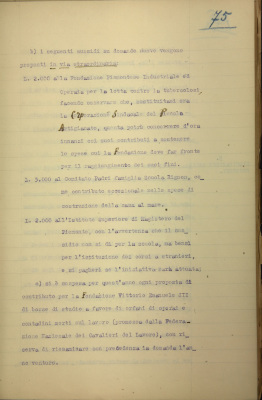 75
b) i seguenti sussidi su domanda dorre vengono
proposti in via straordinaria:
L. 2.000 alla Fondazione Piemontese Industriale ed
Operaia per la lotta contro la tubercolosi,
facendo osservare che, costituitasi ora
la Corporazione Nazionale del Piccolo
Artigianato, questa potrà concorrere d'ora
innanzi coi suoi contributi a sostenere
le spese cui la Fondazione deve far fronte
per il raggiungimento dei suoi fini.
L. 3.000 al Comitato Padri Famiglia Scuola Rignon, co-
me contributo eccezionale nelle spese di
costruzione della casa al mare.
L. 2.000 all'Istituto superiore di Magistero del
Piemonte, con l'avvertenza che il sus-
sidio non si dà per la scuola, ma bensì
per l'istituzione dei corsi a stranieri,
e si pagherà se l'iniziativa sarà attuata;
c) si è sospesa per quest'anno ogni proposta di
contributo per la Fondazione Vittorio Emanuele III
di borse di studio a favore di orfani di operai e
contadini morti sul lavoro (promossa dalla Federa-
zione Nazionale dei Cavalieri del Lavoro), con ri-
serva di riesaminare con precedenza la domanda l'an-
no venturo.